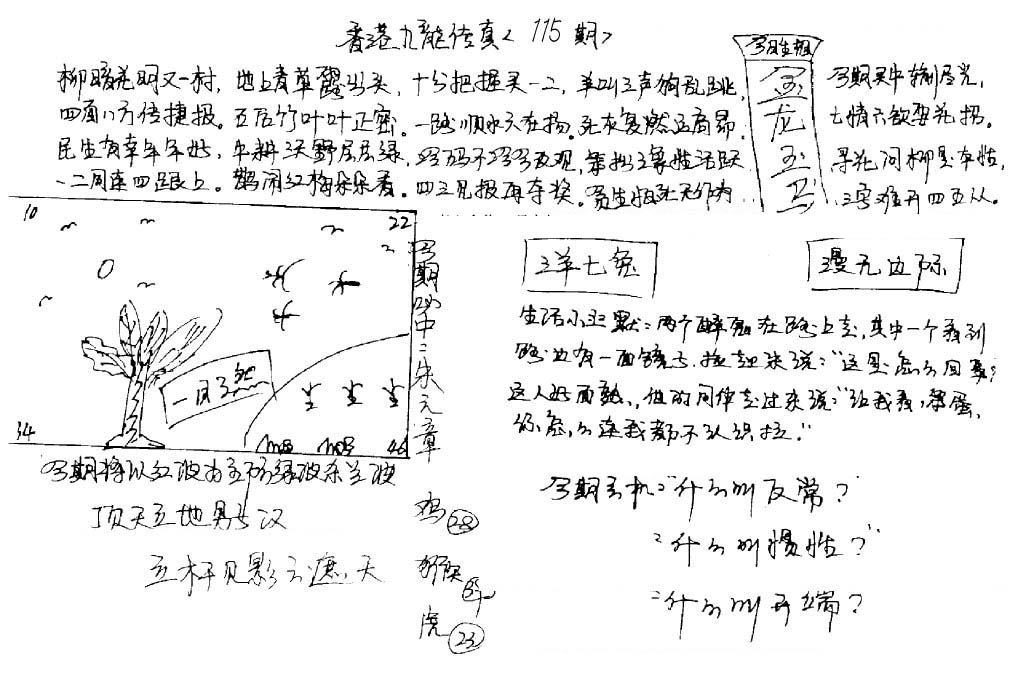 香港九龙传真〈115期〉
今期生相
金
龙
玉
柳暗花明又一村，地上青草露出头，十分把握买一二，羊叫三声狗乱跳，
四面八方传捷报。五后竹叶叶正密。一路顺水六在扬。死灰复燃运高昂。
民生有幸年年好，牛耕沃野层层绿，
一二周连四跟上。鹊闹红梅朵朵香。四三见报再夺奖。
今期买中输尽光，
七情六欲要花招。
寻花问柳是本性，
三零难开四五从。
10
22
34
46
一目了然
今期必中：朱元章
今期特以红波为主防绿波杀兰波
顶天立地男子汉
立杆见影云遮天
鸡 28
猴
虎 23
三羊七兔
漫无边际
生活小幽默：两个醉鬼在路上走，其中一个看到
路边有一面镜子，捡起来说：“这是怎么回事？
这人好面熟，他的同伴走过来说：“给我看，笨蛋，
你怎么连我都不认识拉。”
今期玄机：“什么叫反常？
“什么叫慢性？”
“什么叫开端？